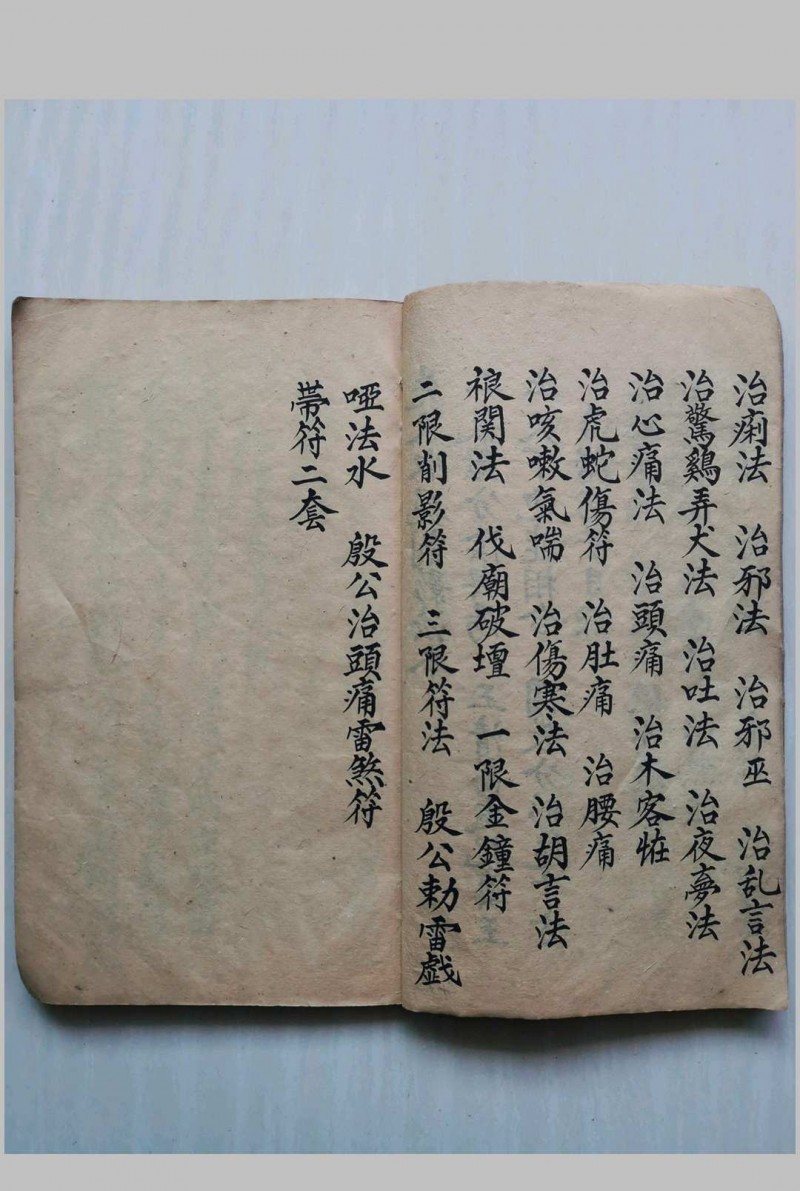 治痢法　治邪法　治邪巫　治乱言法
治驚鷄弄犬法　治吐法　治夜夢法
治心痛法　治頭痛　治木客恠
治虎蛇傷符　治肚痛　治腰痛
治咳嗽氣喘　治傷寒法　治胡言法
関法　伐廟破壇　一限金鐘符
二限削影符　三限符法　殷公勅雷戯
啞法水　殷公治頭痛雷煞符
帯符二套